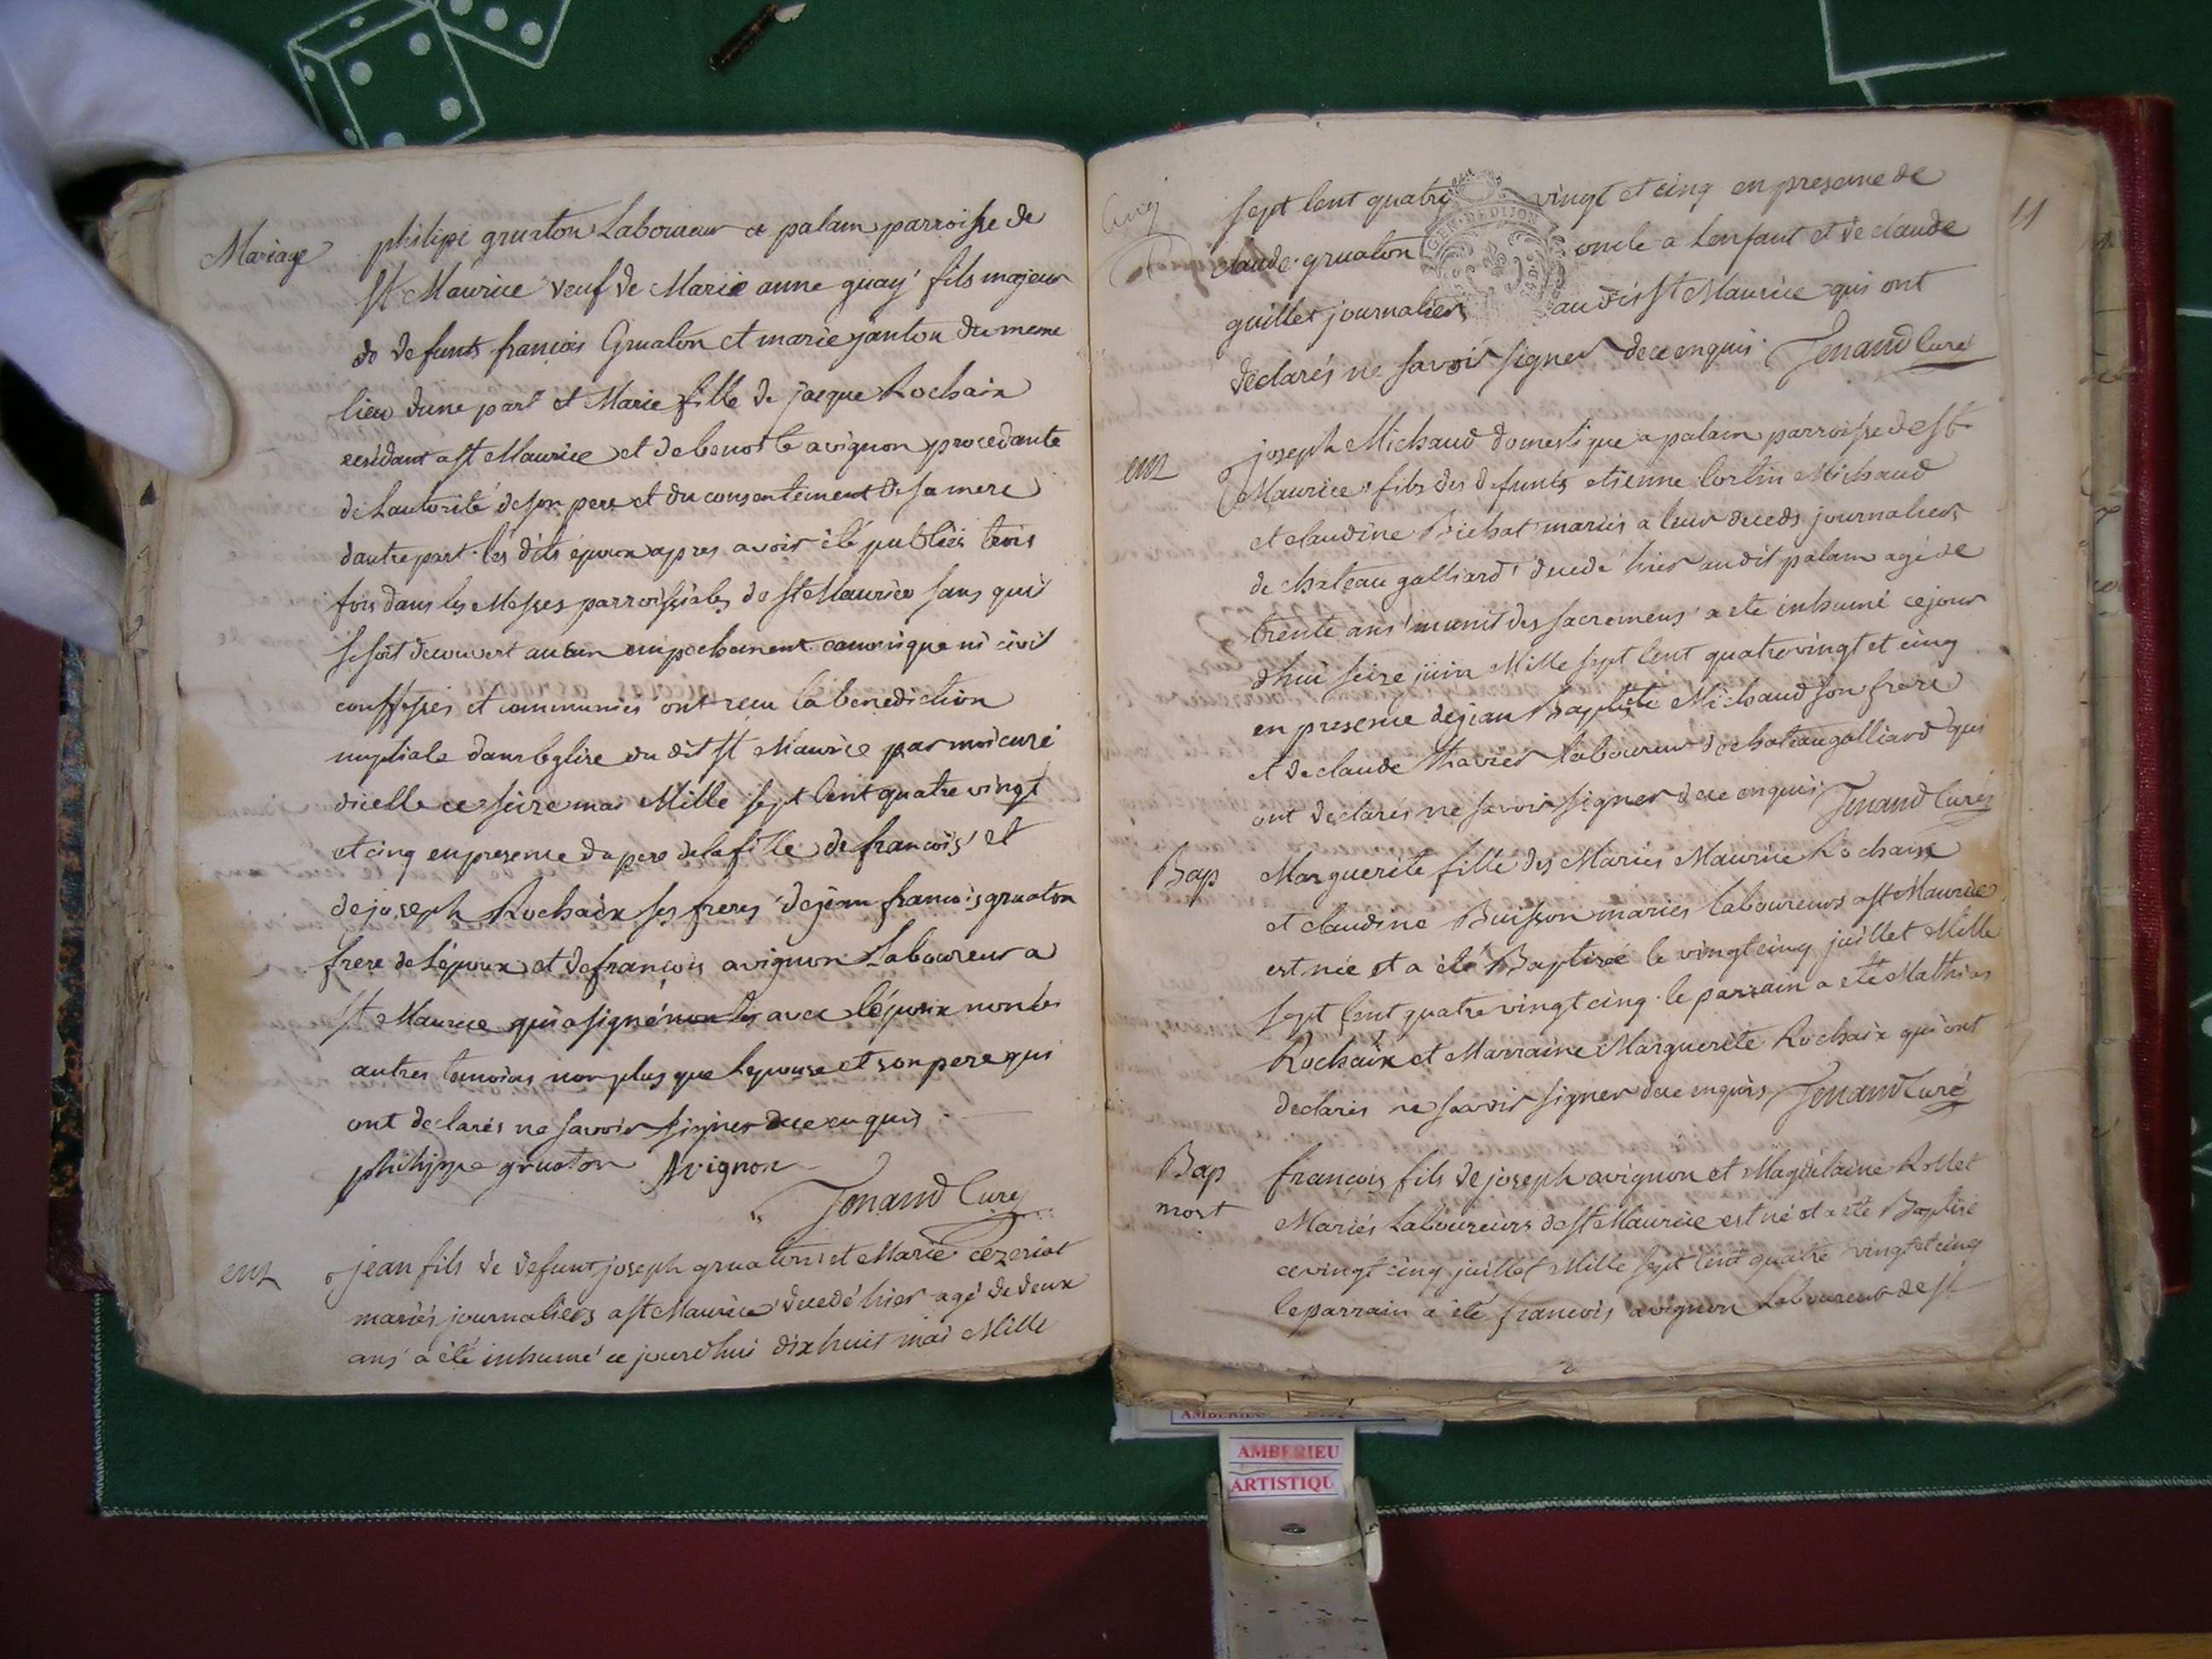 Mariage
philipe gruaton Laboureur a palam parroisse de
St Maurice veuf de Marie anne guay fils majeur
de defunts francois Gruaton et marie janton du meme
lieu dune part et Marie fille de jacque Rochaix
residant a St Maurice et de benoite avignon procedante
de Lautorité de son pere et du consentement de sa mere
dautre part. les dits époux apres avoir été publiés trois
fois dans les Messes parroissiales de St Maurice sans quil
se soit decouvert aucun empechement canonique ni civil
confessés et communiés ont recu la benediction
nuptiale dans leglise du dit St Maurice par moi curé
dicelle ce seize mai Mille sept Cent quatre vingt
et cinq en presence du pere de la fille de francois et
de joseph Rochaix ses freres de jean francois gruaton
frere de Lépoux et de francois avignon Laboureur a
St Maurice qui a signé avec lépoux non les
autres temoins non plus que Lepouse et son pere qui
ont declarés ne savoir signer de ce enquis
philippe gruaton Avignon
Jenand Curé
ent
jean fils de defunt joseph gruaton et Marie cezeriat
mariés journaliers a St Maurice decedé hier agé de deux
ans a été inhumé ce jourdhui dix huit mai Mille
11
sept Cent quatre vingt et cinq en presence de
GEN. DE DIJON
claude gruaton oncle a Lenfant et de claude
guillet journaliers au dit St Maurice qui ont
declarés ne savoir signer de ce enquis Jenand Curé
ent
joseph Michaud domestique a palam parroisse de St
Maurice fils des defunts etienne Michaud
et claudine Bichat mariés a leur deceds journaliers
de chateau galliard decedé hier au dit palam agé de
trente ans munit des sacremens a été inhumé ce jour
dhui seize juin Mille sept Cent quatre vingt et cinq
en presence de jean Baptiste Michaud son frere
et de claude Laboureur de chateau galliard qui
ont declarés ne savoir signer de ce enquis Jenand Curé
Bap
Marguerite fille des Mariés Maurice Rochaix
et claudine Buisson mariés Laboureurs a St Maurice
est née et a été Baptisée le vingt cinq juillet Mille
sept Cent quatre vingt cinq. le parrain a été Mathias
Rochaix et Marraine Marguerite Rochaix qui ont
declarés ne savoir signer de ce enquis Jenand Curé
Bap
mort
francois fils de joseph avignon et Magdelaine Rollet
Mariés Laboureurs de St Maurice est né et a été Baptisé
ce vingt cinq juillet Mille sept Cent quatre vingt et cinq
le parrain a été francois avignon Laboureur de St
AMBERIEU
AMBERIEU
ARTISTIQU